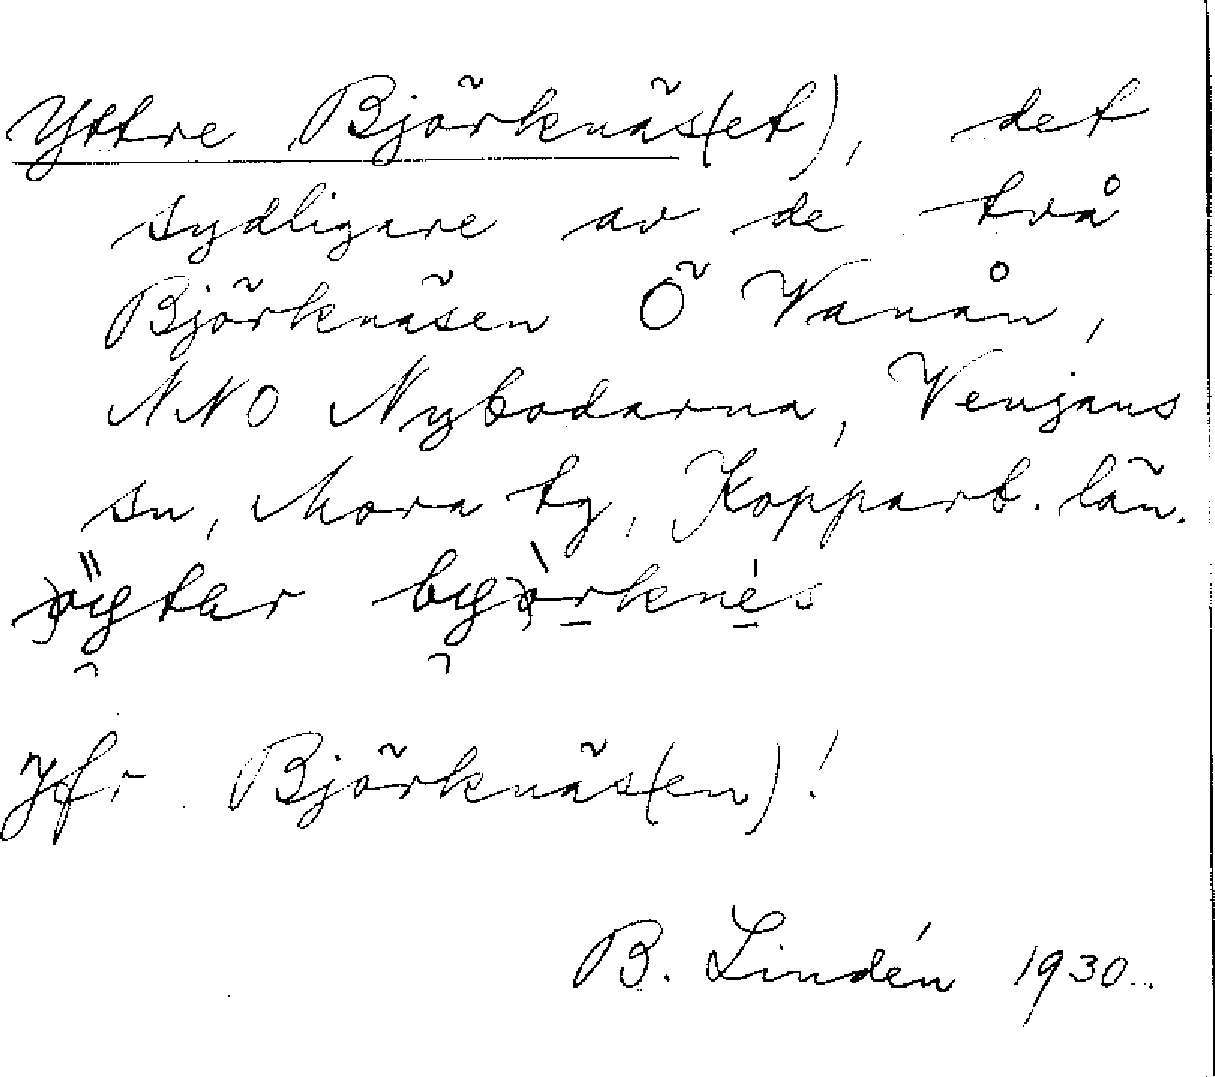 Yttre Björknäs(et), det
sydligare av de två
Björknäsen Ö Vanån,
NNO Nybodarna, Venjans
sn, Mora tg, Kopparb. län.
Jfr Björknäs(en)!
B. Lindén 1930.